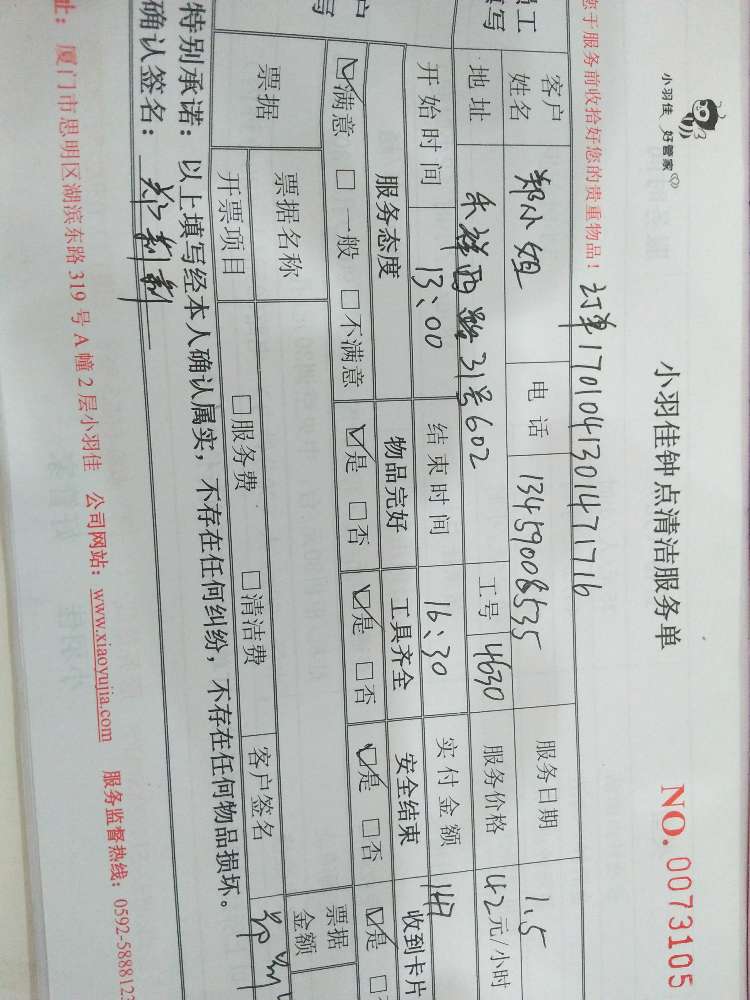 小羽佳 好管家
小羽佳钟点清洁服务单 NO. 0073105
您于服务前收拾好您的贵重物品! 订单1701041301471716
员工 填写 客户姓名 郑小姐 电话 13459008535 服务日期 1.5
地址 禾祥西路31号602 工号 4630 服务价格 42元/小时
开始时间 13:00 结束时间 16:30 实付金额 147
户 写 服务态度 物品完好 工具齐全 安全结束 收到卡片
☑满意 □一般 □不满意 ☑是 □否 ☑是 □否 ☑是 □否 ☑是 □
票据 票据名称 票据金额
开票项目 □服务费 □清洁费 客户签名
特别承诺: 以上填写经本人确认属实, 不存在任何纠纷, 不存在任何物品损坏。
确认签名:
址: 厦门市思明区湖滨东路 319 号 A 幢 2 层小羽佳 公司网站: www.xiaoyujia.com 服务监督热线: 0592-5888123